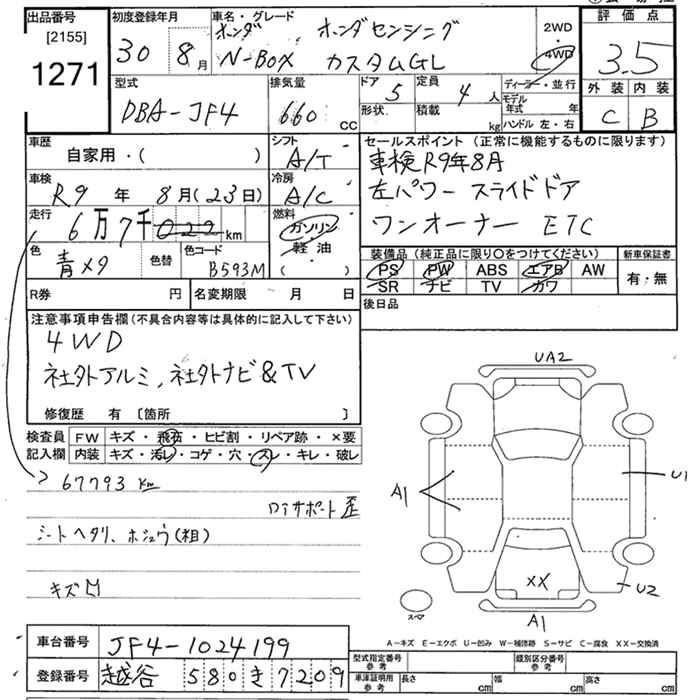 出品番号 初度登録年月 車名・グレード 2WD ・ 4WD 評価点
[2155] 1271 30 8月 ホンダ N-BOX ホンダセンシング カスタムGL 3.5
型式 DBA-JF4 排気量 660 CC ドア 5 定員 4 人 ディーラー・並行 外装 内装
形状 積載 kg モデル年式 年 ハンドル 左・右 C B
車歴 自家用・( ) シフト A/T セールスポイント (正常に機能するものに限ります)
車検R9年8月
左パワースライドドア
ワンオーナー ETC
車検 R9 年 8月(23日) 冷房 A/C
走行 6万7千022km 燃料 ガソリン 軽油 ( )
色 青メタ 色替 色コード B593M
装備品 (純正品に限り○をつけてください) 新車保証書
PS PW ABS エアB AW 有・無
SR ナビ TV カワ
R券 円 名変期限 月 日 後日品
注意事項申告欄 (不具合内容等は具体的に記入して下さい)
4WD
社外アルミ,社外ナビ&TV
修復歴 有 [箇所 ]
検査員 FW キズ・飛石・ヒビ割・リペア跡・×要
記入欄 内装 キズ・汚レ・コゲ・穴・スレ・キレ・破レ
67793 km
コアサポート歪
シートヘタリ、ホシュウ(粗)
キズ凹
UA2
A1 U1
XX U2
スペア A1
A-キズ E-エクボ U-凹み W-補修跡 S-サビ C-腐食 XX-交換済
車台番号 JF4-1024199 型式指定番号 参考 類別区分番号 参考
登録番号 越谷 580 き 7209 車庫証明用 参考 長さ cm 幅 cm 高さ cm